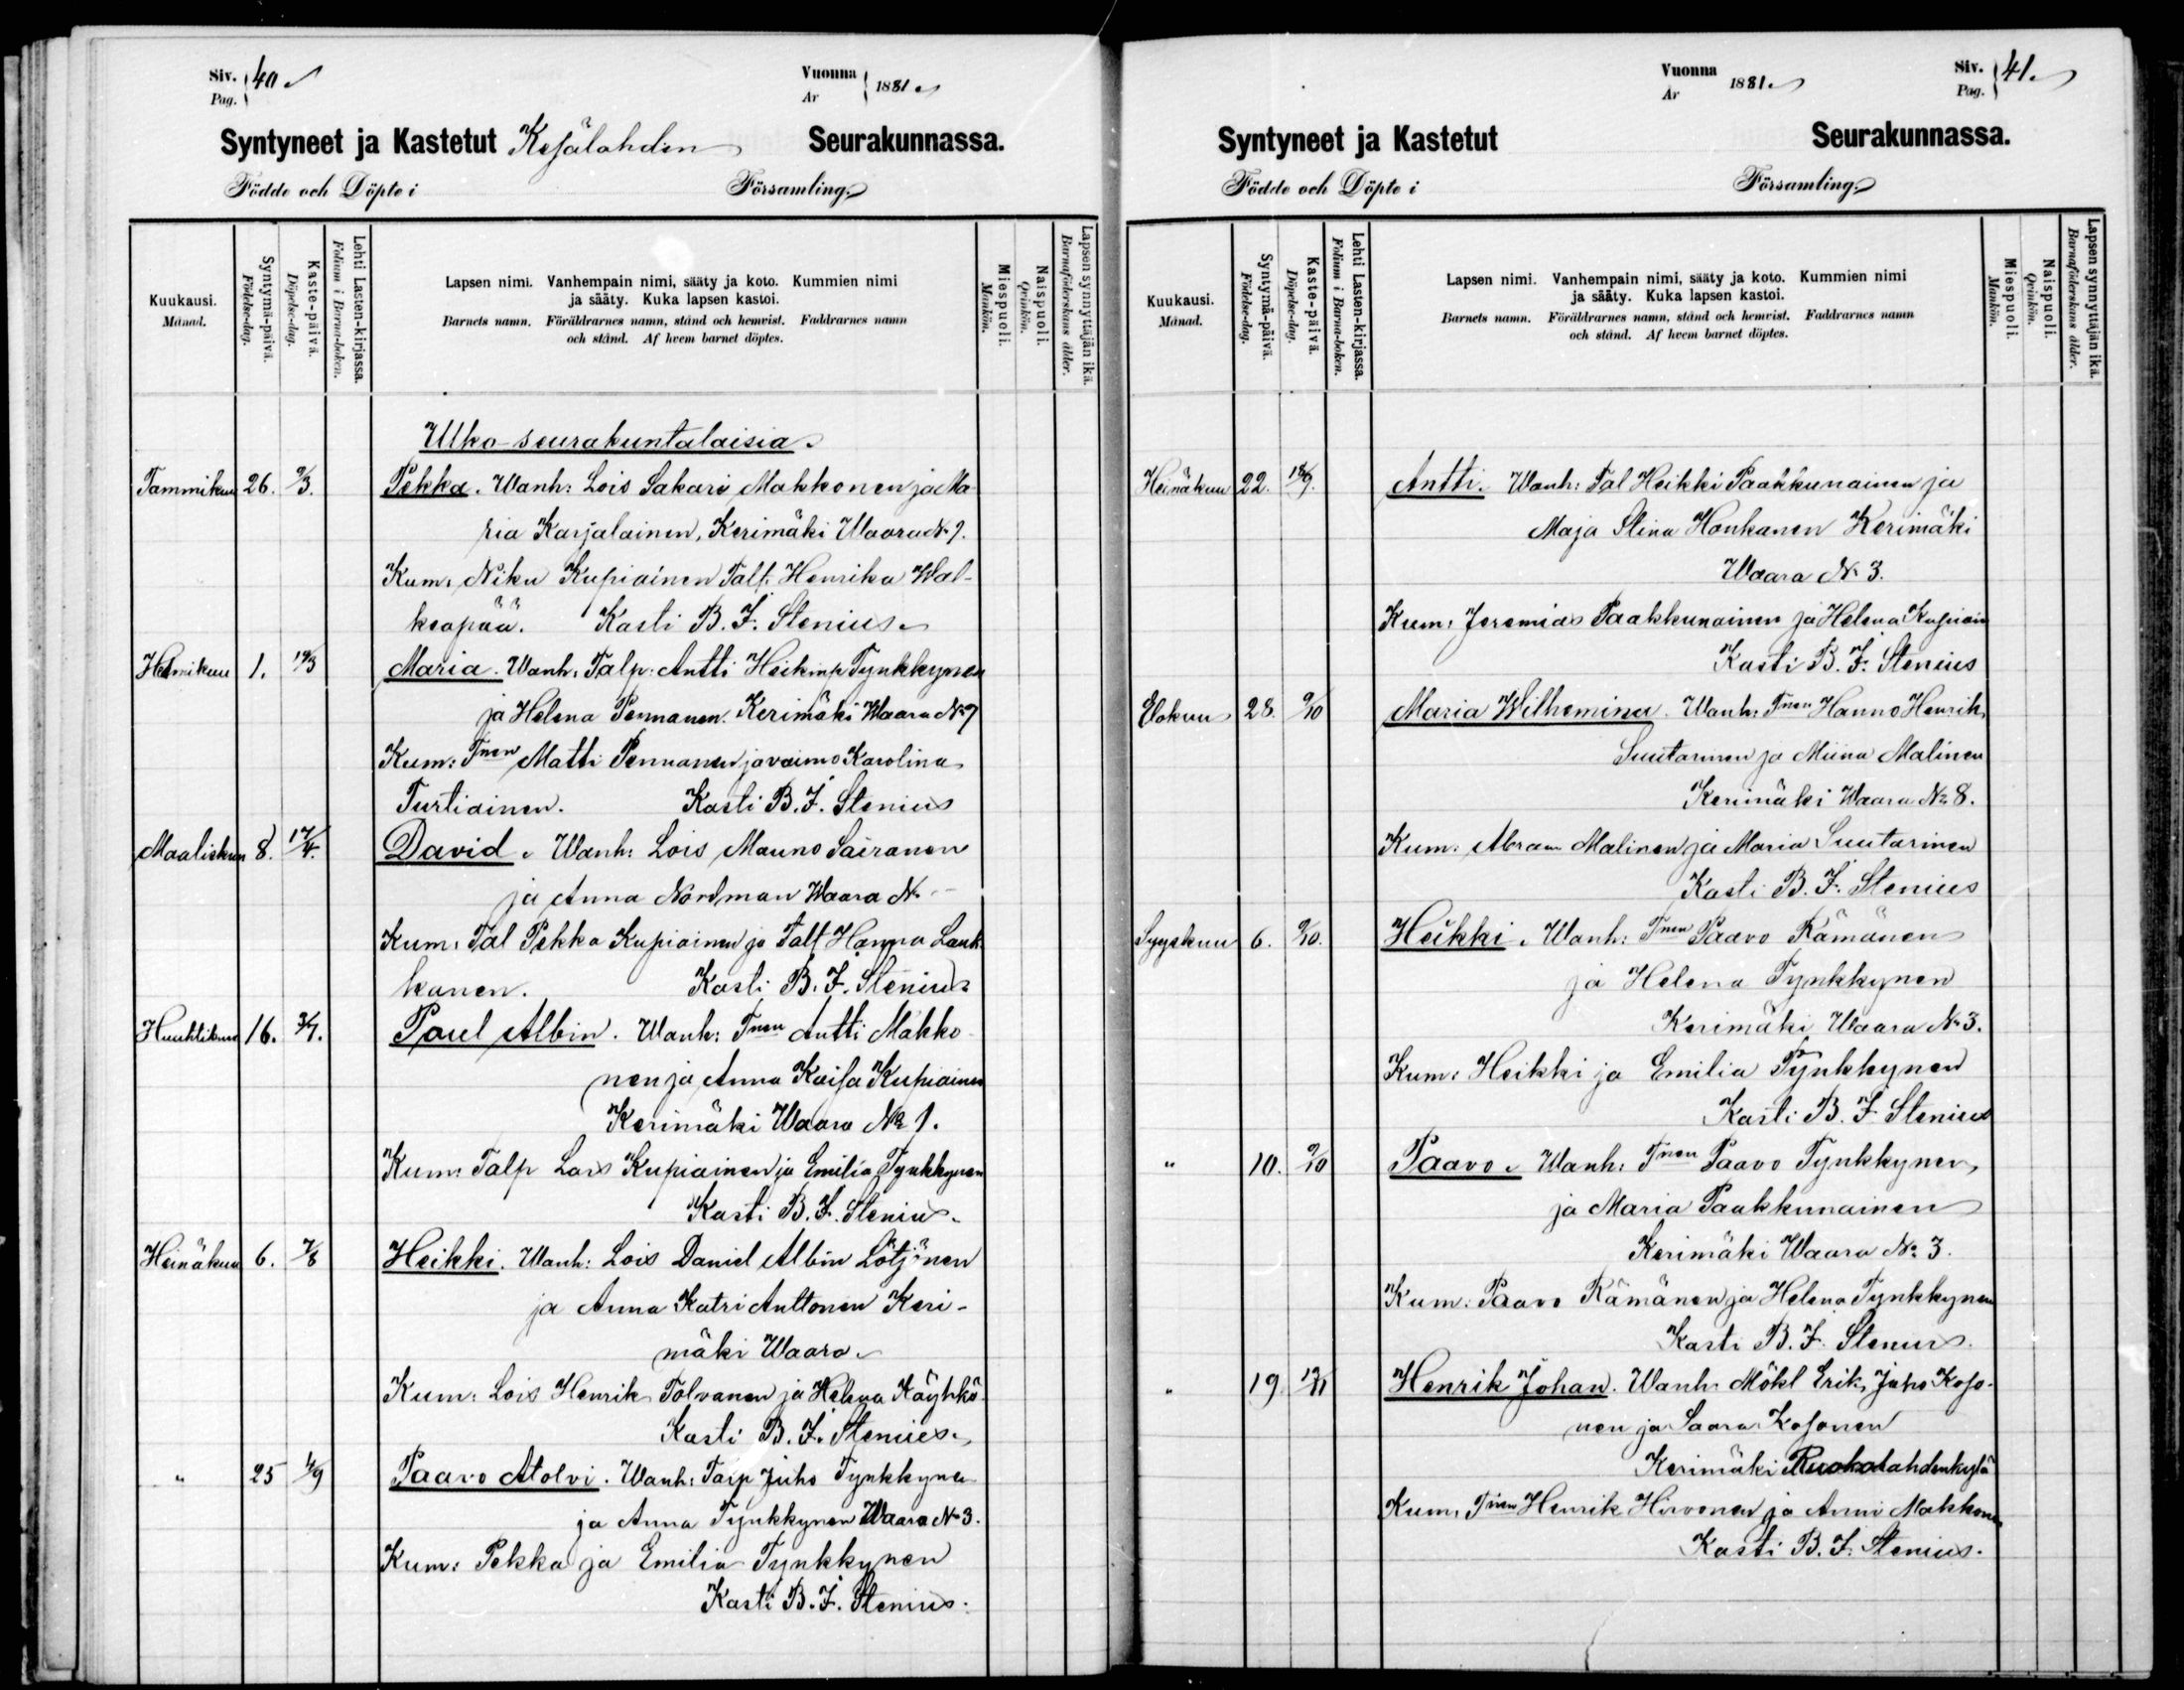 Siv. 40
Pag.
Vuonna 1881
År
Syntyneet ja Kastetut Kesälahden Seurakunnassa.
Födde och Döpte i Församling.
Kuukausi.
Månad.
Syntymä-päivä.
Födelse-dag.
Kaste-päivä.
Döpelse-dag.
Lehti Lasten-kirjassa.
Folium i Barna-boken.
Lapsen nimi. Vanhempain nimi, sääty ja koto. Kummien nimi
ja sääty. Kuka lapsen kastoi.
Barnets namn. Föräldrarnes namn, stånd och hemvist. Faddrarnes namn
och stånd. Af hvem barnet döptes.
Miespuoli.
Mankön.
Naispuoli.
Qvinkön.
Lapsen synnyttäjän ikä.
Barnaföderskans ålder.
Ulko-seurakuntalaisia
Tammikuu 26. 9/3. Pekka. Wanh: Lois Sakari Makkonen ja Ma-
ria Karjalainen, Kerimäki Waara № 1.
Kum: Niku Kupiainen Talt. Henrika Wal-
keapää. Kasti B. F. Stenius
Helmikuu 1. 19/3 Maria. Wanh: Talp. Antti Heikinp Tynkkynen
ja Helena Pennanen. Kerimäki Waara № 7
Kum: Tnen Matti Pennanen ja vaimo Karolina
Turtiainen. Kasti B. F. Stenius
Maaliskuu 8. 17/4. David. Wanh: Lois Mauno Sairanen
ja Anna Nordman Waara №
Kum: Tal Pekka Kupiainen ja Talt Hanna Lauk-
kanen. Kasti B. F. Stenius
Huuhtikuu 16. 3/7. Paul Albin. Wanh: Tnen Antti Makko-
nen ja Anna Kaisa Kupiainen
Kerimäki Waara № 1.
Kum: Talp Lars Kupiainen ja Emilia Tynkkynen
Kasti B. F. Stenius.
Heinäkuu 6. 7/8 Heikki. Wanh: Lois Daniel Albin Lötjönen
ja Anna Katri Anttonen Keri-
mäki Waara
Kum: Lois Henrik Tolvanen ja Helena Käyhkö
Kasti B. F. Stenius.
" 25 4/9 Paavo Atolvi. Wanh: Talp Juho Tynkkynen
ja Anna Tynkkynen Waara № 3.
Kum: Pekka ja Emilia Tynkkynen
Kasti B. F. Stenius.
Vuonna 1881
År
Siv. 41.
Pag.
Syntyneet ja Kastetut Seurakunnassa.
Födde och Döpte i Församling.
Kuukausi.
Månad.
Syntymä-päivä.
Födelse-dag.
Kaste-päivä.
Döpelse-dag.
Lehti Lasten-kirjassa.
Folium i Barna-boken.
Lapsen nimi. Vanhempain nimi, sääty ja koto. Kummien nimi
ja sääty. Kuka lapsen kastoi.
Barnets namn. Föräldrarnes namn, stånd och hemvist. Faddrarnes namn
och stånd. Af hvem barnet döptes.
Miespuoli.
Mankön.
Naispuoli.
Qvinkön.
Lapsen synnyttäjän ikä.
Barnaföderskans ålder.
Heinäkuu 22. 18/9. Antti. Wanh: Tal Heikki Paakkunainen ja
Maja Stina Honkanen Kerimäki
Waara № 3.
Kum: Jeremias Paakkunainen ja Helena Kupiain
Kasti B. F. Stenius
Elokuu 28. 9/10 Maria Wilhemina. Wanh: Tnen Hanno Henrik
Suutarinen ja Miina Malinen
Kerimäki Waara № 8.
Kum: Abram Malinen ja Maria Suutarinen
Kasti B. F. Stenius
Syyskuu 6. 9/10. Heikki. Wanh: Tnen Paavo Rämänen
ja Helena Tynkkynen
Kerimäki Waara № 3.
Kum: Heikki ja Emilia Tynkkynen
Kasti B. F. Stenius
" 10. 9/10 Paavo. Wanh: Tnen Paavo Tynkkynen
ja Maria Paakkunainen
Kerimäki Waara № 3.
Kum: Paavo Rämänen ja Helena Tynkkynen
Kasti B. F. Stenius
" 19 13/11 Henrik Johan. Wanh: Mökl Erik Juho Koso-
nen ja Saara Kosonen
Kerimäki Ruokolahdenkylä
Kum: Tnen Henrik Hirvonen ja Anni Makkonen
Kasti B. F. Stenius.